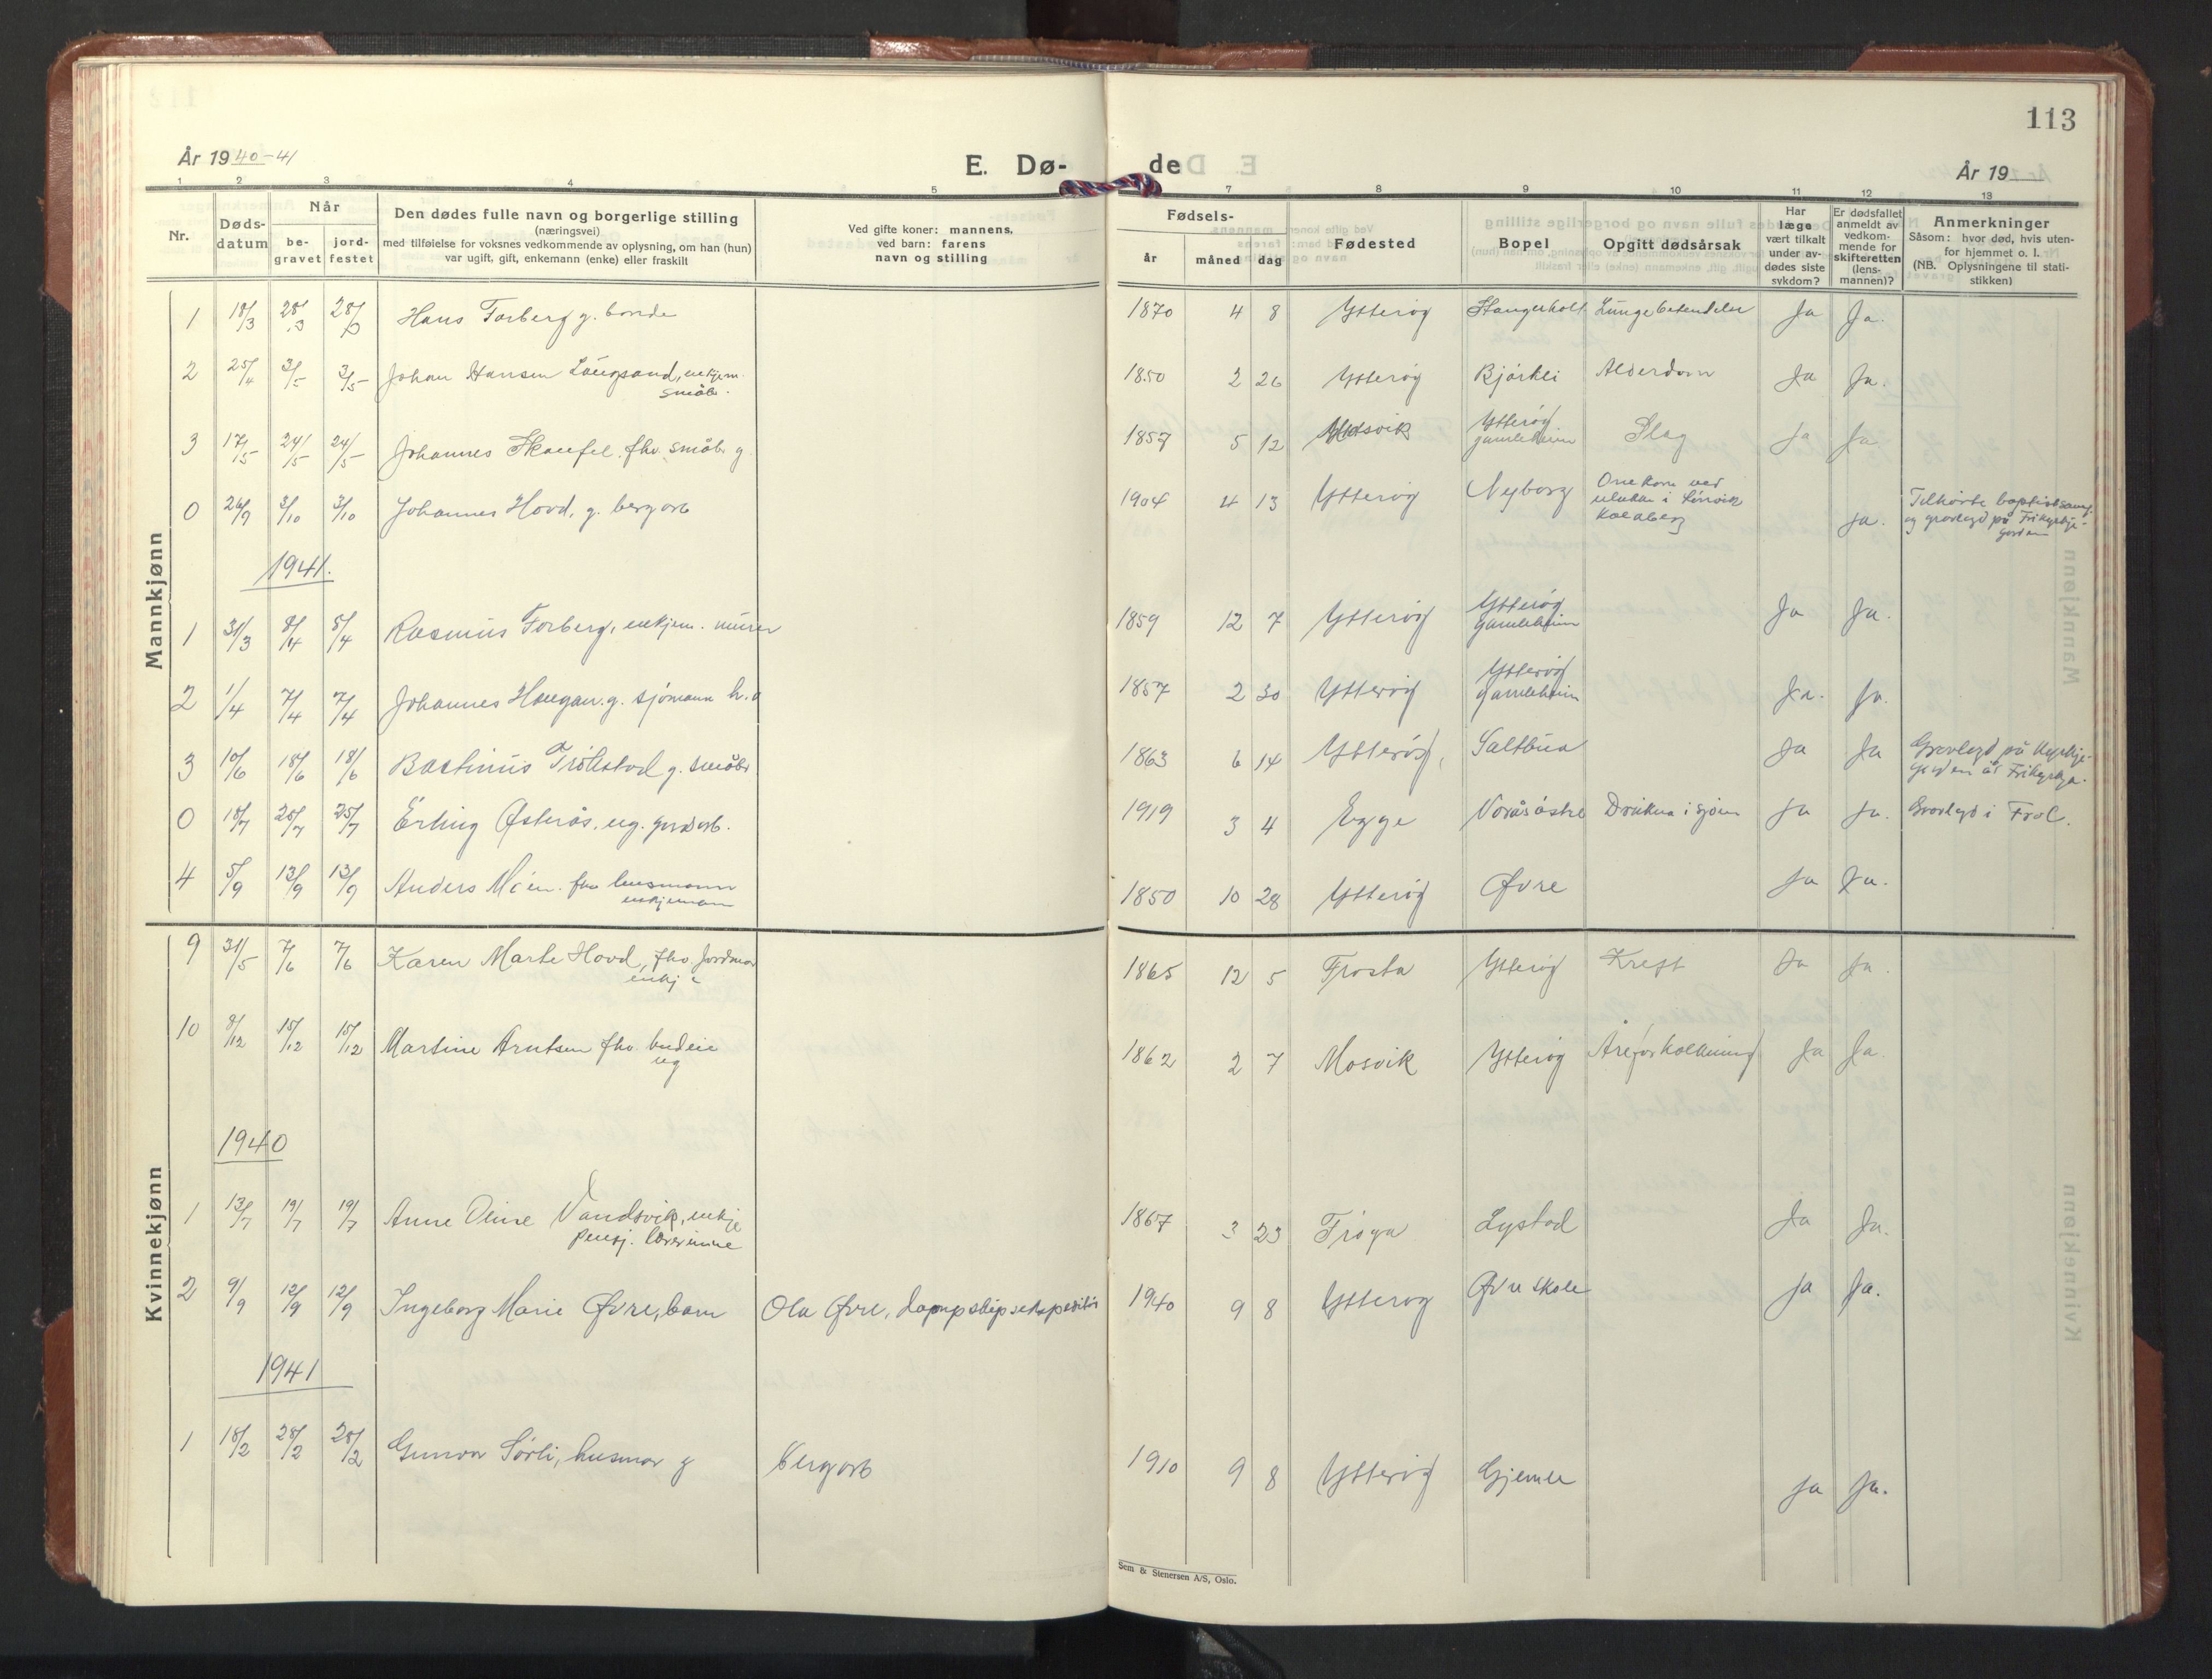 113
År 1940-41
E. Dø-
de
År 19
1 2 3 4 5 7 8 9 10 11 12 13
Nr.
Døds-
datum
Når
be-
gravet
jord-
festet
Den dødes fulle navn og borgerlige stilling
(næringsvei)
med tilføielse for voksnes vedkommende av oplysning, om han (hun)
var ugift, gift, enkemann (enke) eller fraskilt
Ved gifte koner: mannens,
ved barn: farens
navn og stilling
Fødsels-
år måned dag
Fødested
Bopel
Opgitt dødsårsak
Har
læge
vært tilkalt
under av-
dødes siste
sykdom?
Er dødsfallet
anmeldt av
vedkom-
mende for
skifteretten
(lens-
mannen)?
Anmerkninger
Såsom: hvor død, hvis uten-
for hjemmet o. l.
(NB. Oplysningene til stati-
stikken)
Mannkjønn
1 18/3 28/3 28/3 Hans Forberg g. bonde 1870 4 8 Ytterøy Stangerholt Lungebetendelse Ja Ja.
2 25/4 3/5 3/5 Johan Hansen Laugsand, enkjem. 1850 2 26 Ytterøy Bjørkli Alderdom Ja Ja.
småbr.
3 17/5 24/5 24/5 Johannes Skaufel. fhv. småbr g. 1857 5 12 Mosvik Ytterøy Slag Ja Ja
gamleheim
0 26/9 3/10 3/10 Johannes Hovd, g. bergarb 1904 4 13 Ytterøy Nyborg Omkom ved
ulukke i
Ja.
Tilhørte baptistsamf.
og gravlagd på Frikyrkje-
garden
1941.
1 31/3 8/4 8/4 Rasmus Forberg, enkjem. murer 1859 12 7 Ytterøy Ytterøy Ja Ja.
gamleheim
2 1/4 7/4 7/4 Johannes Haugan. g. sjømann 1857 2 30 Ytterøy Ytterøy Ja. Ja.
gamleheim
3 10/6 18/6 18/6 Bastinus Trøkstad g. småbr. 1863 6 14 Ytterøy, Saltbua Ja Ja Gravlagd på kyrkje-
garden åt Frikyrkja.
0 18/7 25/7 25/7 Erling Østerås, ug. gardarb. 1919 3 4 Egge Vorås østre Drukna i sjøen Ja Ja. Gravlagd i Frol.
4 5/9 13/9 13/9 Anders Moen. fhv husmann 1850 10 28 Ytterøy Øvre Ja Ja.
enkjemann
Kvinnekjønn
9 31/5 7/6 7/6 Karen Marte Hovd, fhv. Jordmor 1865 12 5 Frosta Ytterøy Kreft Ja Ja.
enkje
10 8/12 15/12 15/12 Martine Arntsen fhv. budeie 1862 2 7 Mosvik Ytterøy Åreforkalkning Ja Ja.
ug
1940
1 13/7 19/7 19/7 Anne Oline Vandsvik, enkje 1867 3 23 Frøya Lystad Ja Ja.
pensj. lærerinne
2 9/9 12/9 12/9 Ingeborg Marie Øvre, barn Ola Øvre, dampskipsekspeditør 1940 9 8 Ytterøy Øvre skole Ja Ja.
1941
1 18/2 28/2 28/2 Gunvor Sørli, husmor g bergarb 1910 9 8 Ytterøy Gjemle Ja Ja.
Sem & Stenersen A/S, Oslo.